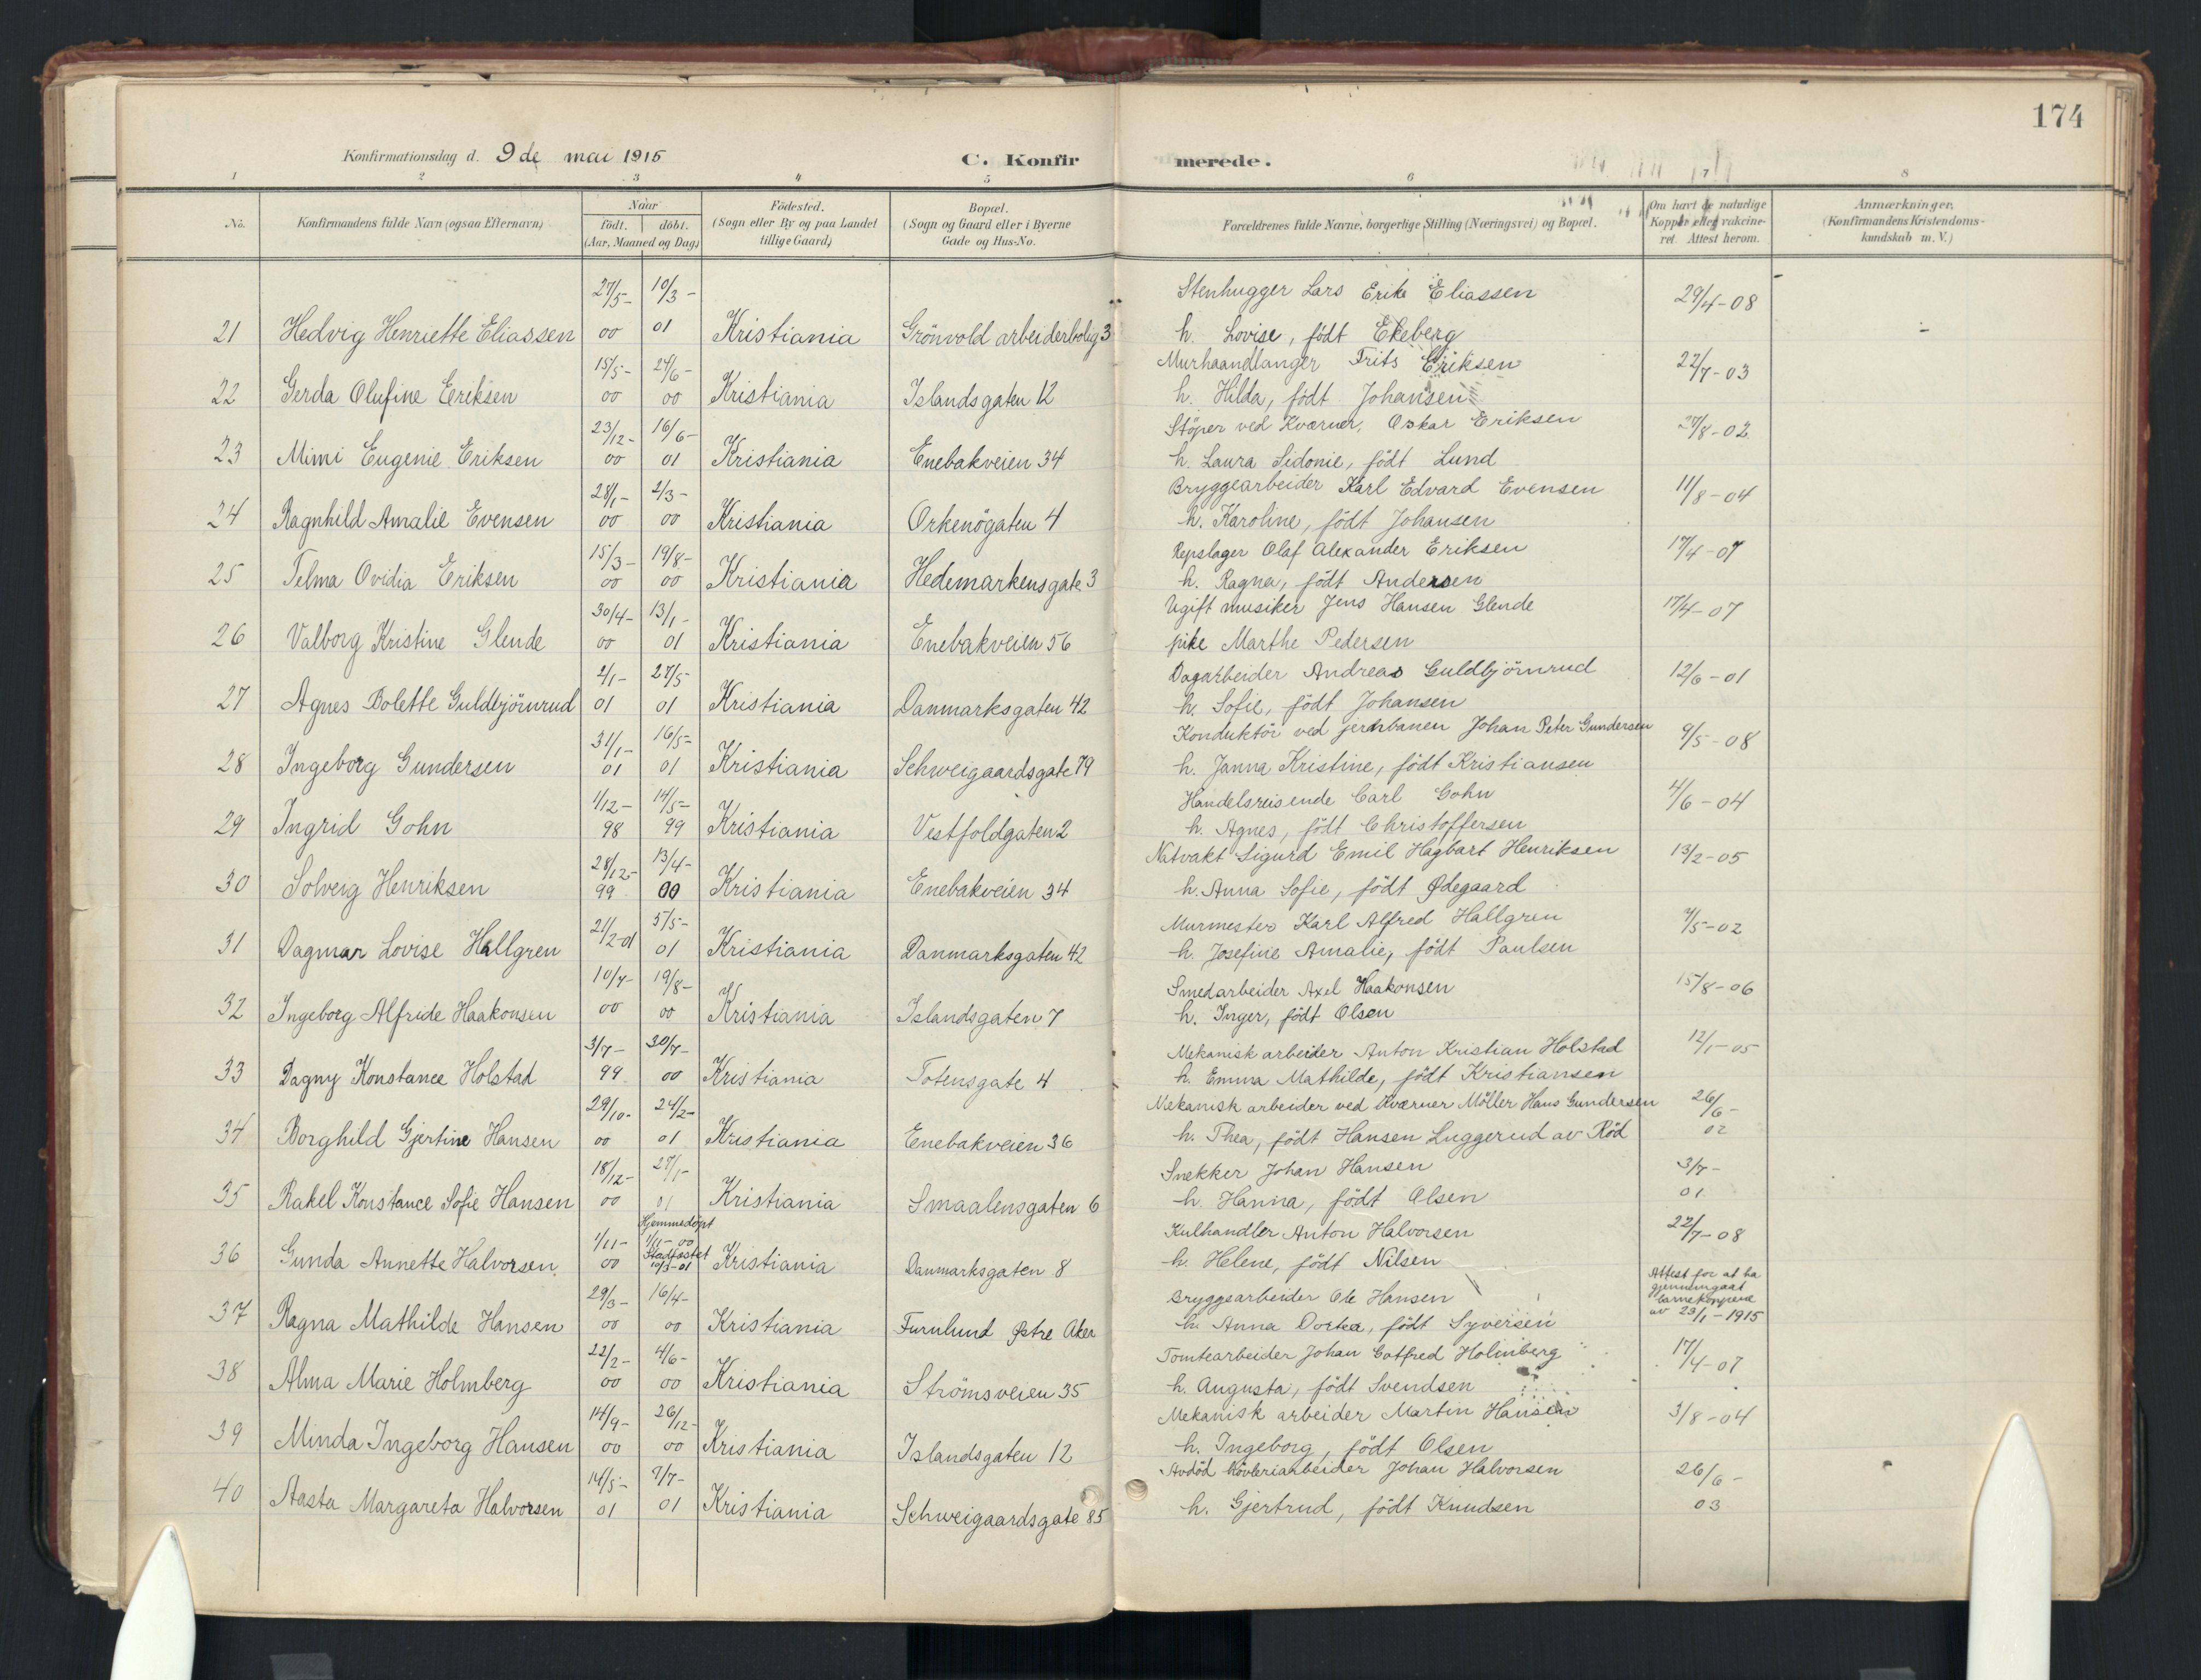 174
Konfirmationsdag d. 9 de mai 1915 C. Konfirmerede.
1 2 3 4 5 6 7 8
No. Konfirmandens fulde Navn (ogsaa Efternavn) Naar født. døbt. (Aar, Maaned og Dag) Fødested. (Sogn eller By og paa Landet tillige Gaard) Bopæl. (Sogn og Gaard eller i Byerne Gade og Hus-No. Forældrenes fulde Navne, borgerlige Stilling (Næringsvei) og Bopæl. Om havt de naturlige Kopper eller vakcineret. Attest herom. Anmærkninger. (Konfirmandens Kristendomskundskab m. V.)
27/5- 10/3- Stenhugger Lars Erik Eliassen 29/4-08
21 Hedvig Henriette Eliassen 00 01 Kristiania Grönvold arbeiderbolig 3 h. Lovise, född Ekeberg
15/5- 24/6- Murhaandlanger Frits Eriksen 22/7-03
22 Gerda Olufine Eriksen 00 00 Kristiania Islandsgaten 12 h. Hilda, född Johansen
23/12- 16/6- Stöper ved Kværner, Oskar Eriksen 27/8-02
23 Mimi Eugenie Eriksen 00 01 Kristiania Enebakveien 34 h. Laura Sidonie, födt Lund
28/1- 2/3- Bryggearbeider Karl Edvard Evensen 11/8-04
24 Ragnhild Amalie Evensen 00 00 Kristiania Orkenögaten 4 h. Karoline, födt Johansen
15/3- 19/8- Repslager Olaf Alexander Eriksen 17/4-07
25 Telma Ovidia Eriksen 00 00 Kristiania Hedemarkensgate 3 h. Ragna, födt Andersen
30/4- 13/1- Ugift musiker Jens Hansen Glende 17/4-07
26 Valborg Kristine Glende 00 01 Kristiania Enebakveien 56 pike Marthe Pedersen
2/1- 27/5- Dagarbeider Andreas Guldbjörnrud 12/6-01
27 Agnes Bolette Guldbjörnrud 01 01 Kristiania Danmarksgaten 42 h. Sofie, födt Johansen
31/1- 16/5- Konduktör ved jernbanen Johan Peter Gundersen 9/5-08
28 Ingeborg Gundersen 01 01 Kristiania Schweigaardsgate 79 h. Janna Kristine, födt Kristiansen
1/12- 14/5- Handelsreisende Carl Gohn 4/6-04
29 Ingrid Gohn 98 99 Kristiania Vestfoldgaten 2 h. Agnes, födt Christoffersen
28/12- 13/4- Natvakt Sigurd Emil Hagbart Henriksen 13/2-05
30 Solveig Henriksen 99 00 Kristiania Enebakveien 34 h. Anna Sofie, födt Ødegaard
21/2-01 5/5- Murmester Karl Alfred Hallgren /5-02
31 Dagmar Lovise Hallgren 01 Kristiania Danmarksgaten 42 h. Josefine Amalie, födt Paulsen
10/7- 19/8- Smedarbeider Axel Haakonsen 15/8-06
32 Ingeborg Alfride Haakonsen 00 00 Kristiania Islandsgaten 7 h. Inger, födt Olsen
3/7- 30/7- Mekanisk arbeider Anton Kristian Holstad 12/1-05
33 Dagny Konstance Holstad 99 00 Kristiania Totensgate 4 h. Emma Mathilde, födt Kristiansen
29/10- 24/2- Mekanisk arbeider ved Kværner Möller Hans Gundersen 26/6-
34 Borghild Gjertine Hansen 00 01 Kristiania Enebakveien 36 h. Thea, födt Hansen Luggerud av Röd 02
18/12- 27/1- Snekker Johan Hansen 3/7-
35 Rakel Konstance Sofie Hansen 00 01 Kristiania Smaalensgaten 6 h. Hanna, födt Olsen 01
Hjemmedöpt
1/11- 1/11-00 Kulhandler Anton Halvorsen 22/7-08
36 Gunda Annette Halvorsen 00 Stadfæstet 10/3-01 Kristiania Danmarksgaten 8 h. Helene, födt Nilsen
29/3- 16/4- Bryggearbeider Ole Hansen Attest for at ha gjennemgaat
37 Ragna Mathilde Hansen 00 00 Kristiania Furulund Østre Aker h. Anna Dortea, födt Syversen av 23/1-1915
22/2- 4/6- Tomtearbeider Johan Gotfred Holmberg 17/4-07
38 Alma Marie Holmberg 00 00 Kristiania Strömsveien 35 h. Augusta, födt Svendsen
14/9- 26/12- Mekanisk arbeider Martin Hansen 3/8-04
39 Minda Ingeborg Hansen 00 00 Kristiania Islandsgaten 12 h. Ingeborg, födt Olsen
14/5- 7/7- Avdöd hövleriarbeider Johan Halvorsen 26/6-
40 Aasta Margareta Halvorsen 01 01 Kristiania Schweigaardsgate 85 h. Gjertrud, födt Knudsen 03